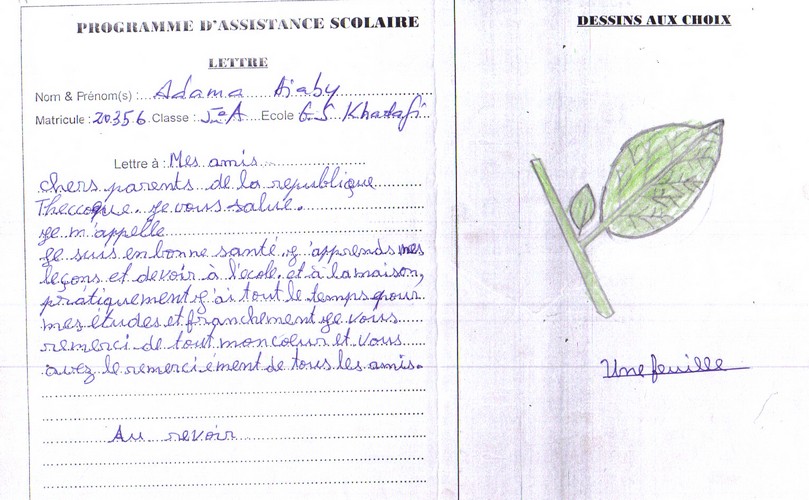 PROGRAMME D'ASSISTANCE SCOLAIRE
LETTRE
Nom & Prénom(s) : Adama Diaby
Matricule : 20356 Classe : 5e A Ecole G.S Khadafi
Lettre à : Mes amis
chers parents de la republique
Thecceque. je vous salue.
je m'appelle
je suis en bonne santé, j'apprends mes
leçons et devoir à l'école. et à la maison,
pratiquement j'ai tout le temps pour
mes études et franchement je vous
remerci de tout mon coeur et vous
avez le remerciément de tous les amis.
Au revoir
DESSINS AUX CHOIX
Une feuille